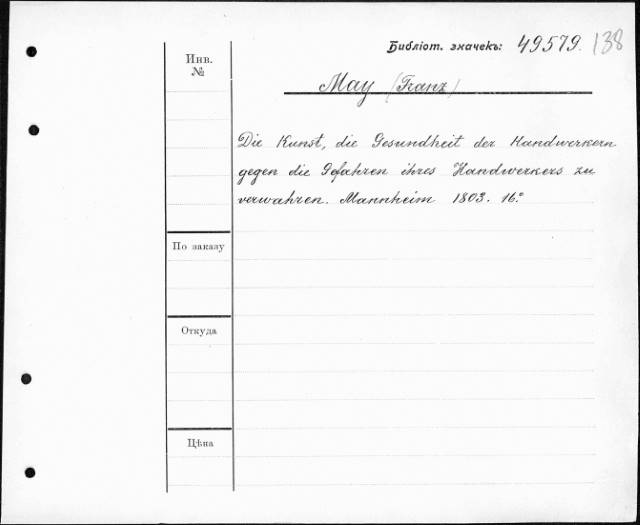 Библіот. значекъ: 49579. 138
Инв.
№
May (Franz)
Die Kunst, die Gesundheit der Handwerkern
gegen die Gefahren ihres Handwerkers zu
verwahren. Mannheim 1803. 16.°
По заказу
Откуда
Цѣна